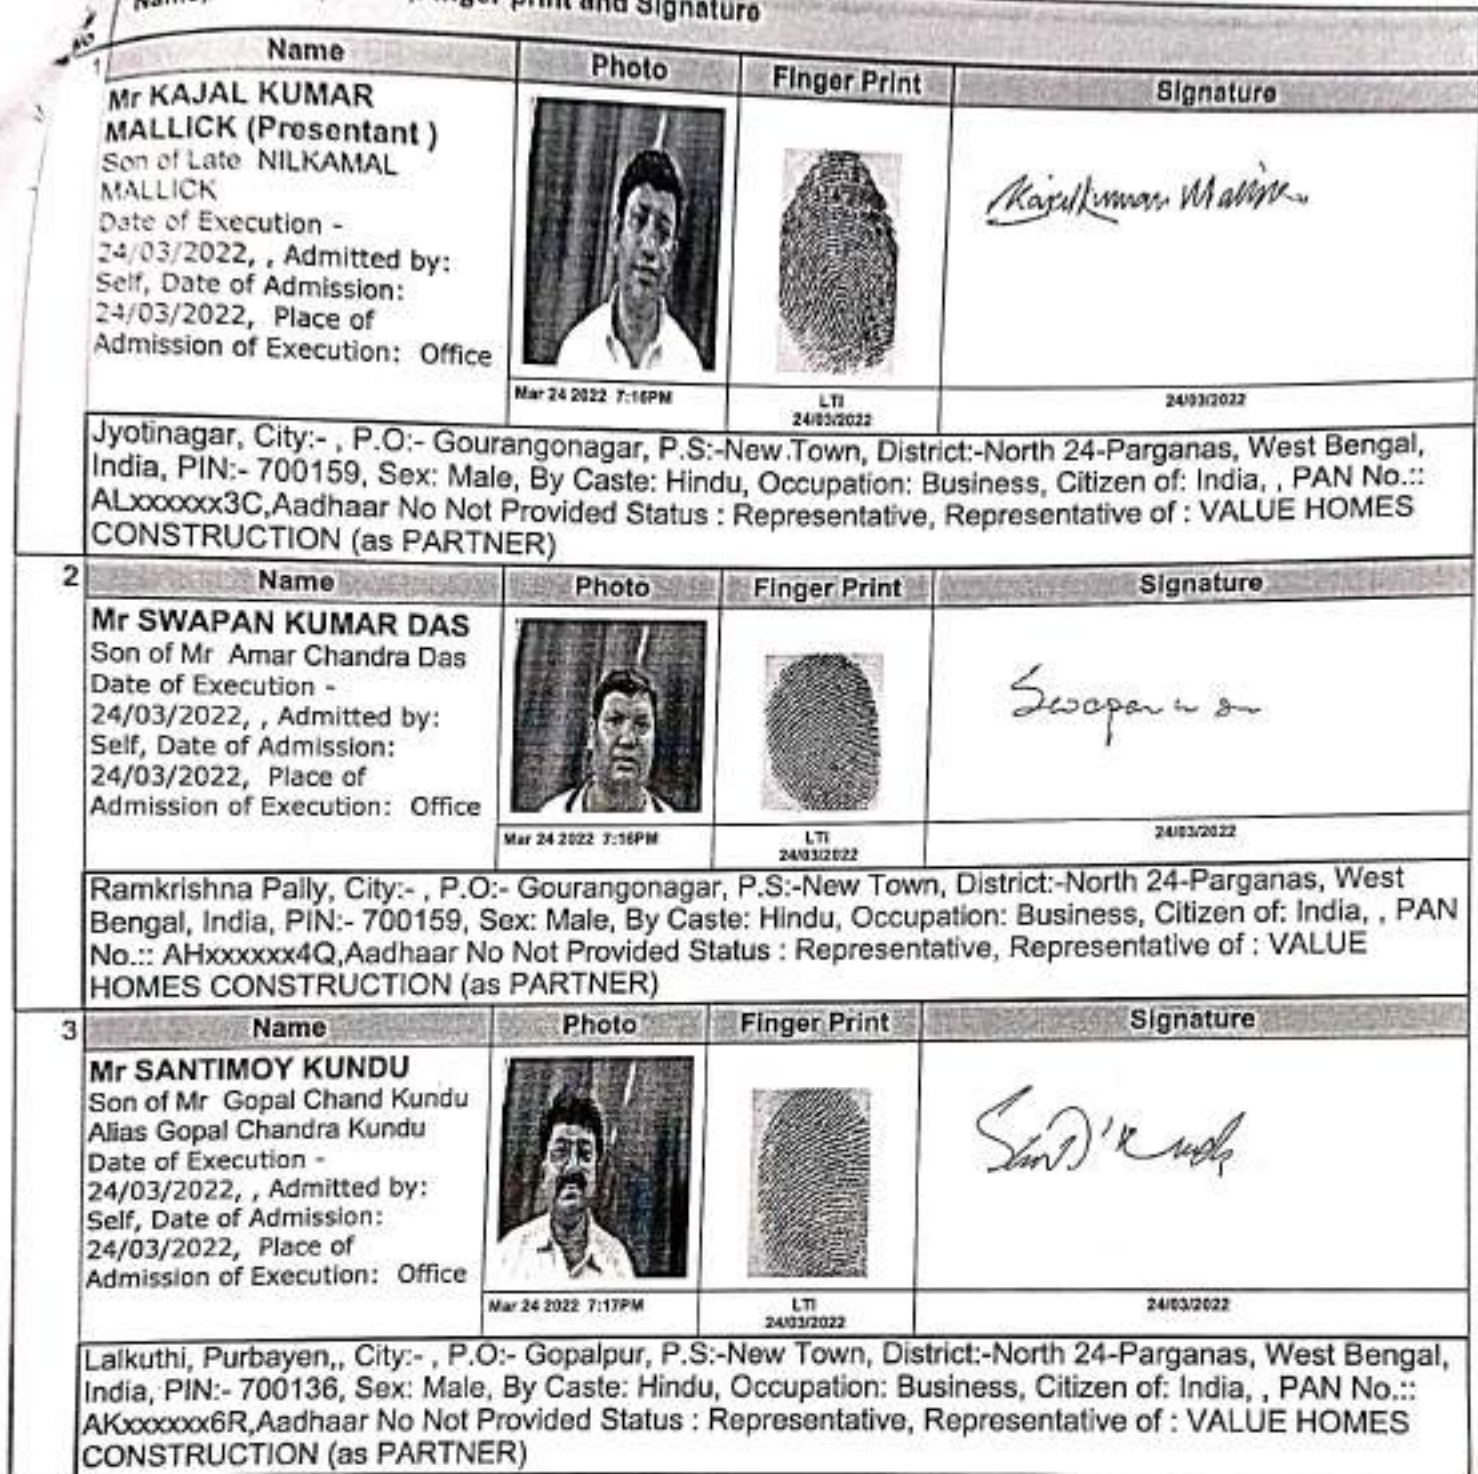 Finger print and Signature
No
1
Name
Photo
Finger Print
Signature
Mr KAJAL KUMAR
MALLICK (Presentant )
Son of Late NILKAMAL
MALLICK
Date of Execution -
24/03/2022, , Admitted by:
Self, Date of Admission:
24/03/2022, Place of
Admission of Execution: Office
Kajal Kumar Mallick
Mar 24 2022 7:16PM
LTI
24/03/2022
24/03/2022
Jyotinagar, City:- , P.O:- Gourangonagar, P.S:-New Town, District:-North 24-Parganas, West Bengal,
India, PIN:- 700159, Sex: Male, By Caste: Hindu, Occupation: Business, Citizen of: India, , PAN No.::
ALxxxxxx3C,Aadhaar No Not Provided Status : Representative, Representative of : VALUE HOMES
CONSTRUCTION (as PARTNER)
2
Name
Photo
Finger Print
Signature
Mr SWAPAN KUMAR DAS
Son of Mr Amar Chandra Das
Date of Execution -
24/03/2022, , Admitted by:
Self, Date of Admission:
24/03/2022, Place of
Admission of Execution: Office
Mar 24 2022 7:16PM
LTI
24/03/2022
24/03/2022
Ramkrishna Pally, City:- , P.O:- Gourangonagar, P.S:-New Town, District:-North 24-Parganas, West
Bengal, India, PIN:- 700159, Sex: Male, By Caste: Hindu, Occupation: Business, Citizen of: India, , PAN
No.:: AHxxxxxx4Q,Aadhaar No Not Provided Status : Representative, Representative of : VALUE
HOMES CONSTRUCTION (as PARTNER)
3
Name
Photo
Finger Print
Signature
Mr SANTIMOY KUNDU
Son of Mr Gopal Chand Kundu
Alias Gopal Chandra Kundu
Date of Execution -
24/03/2022, , Admitted by:
Self, Date of Admission:
24/03/2022, Place of
Admission of Execution: Office
Mar 24 2022 7:17PM
LTI
24/03/2022
24/03/2022
Lalkuthi, Purbayen,, City:- , P.O:- Gopalpur, P.S:-New Town, District:-North 24-Parganas, West Bengal,
India, PIN:- 700136, Sex: Male, By Caste: Hindu, Occupation: Business, Citizen of: India, , PAN No.::
AKxxxxxx6R,Aadhaar No Not Provided Status : Representative, Representative of : VALUE HOMES
CONSTRUCTION (as PARTNER)